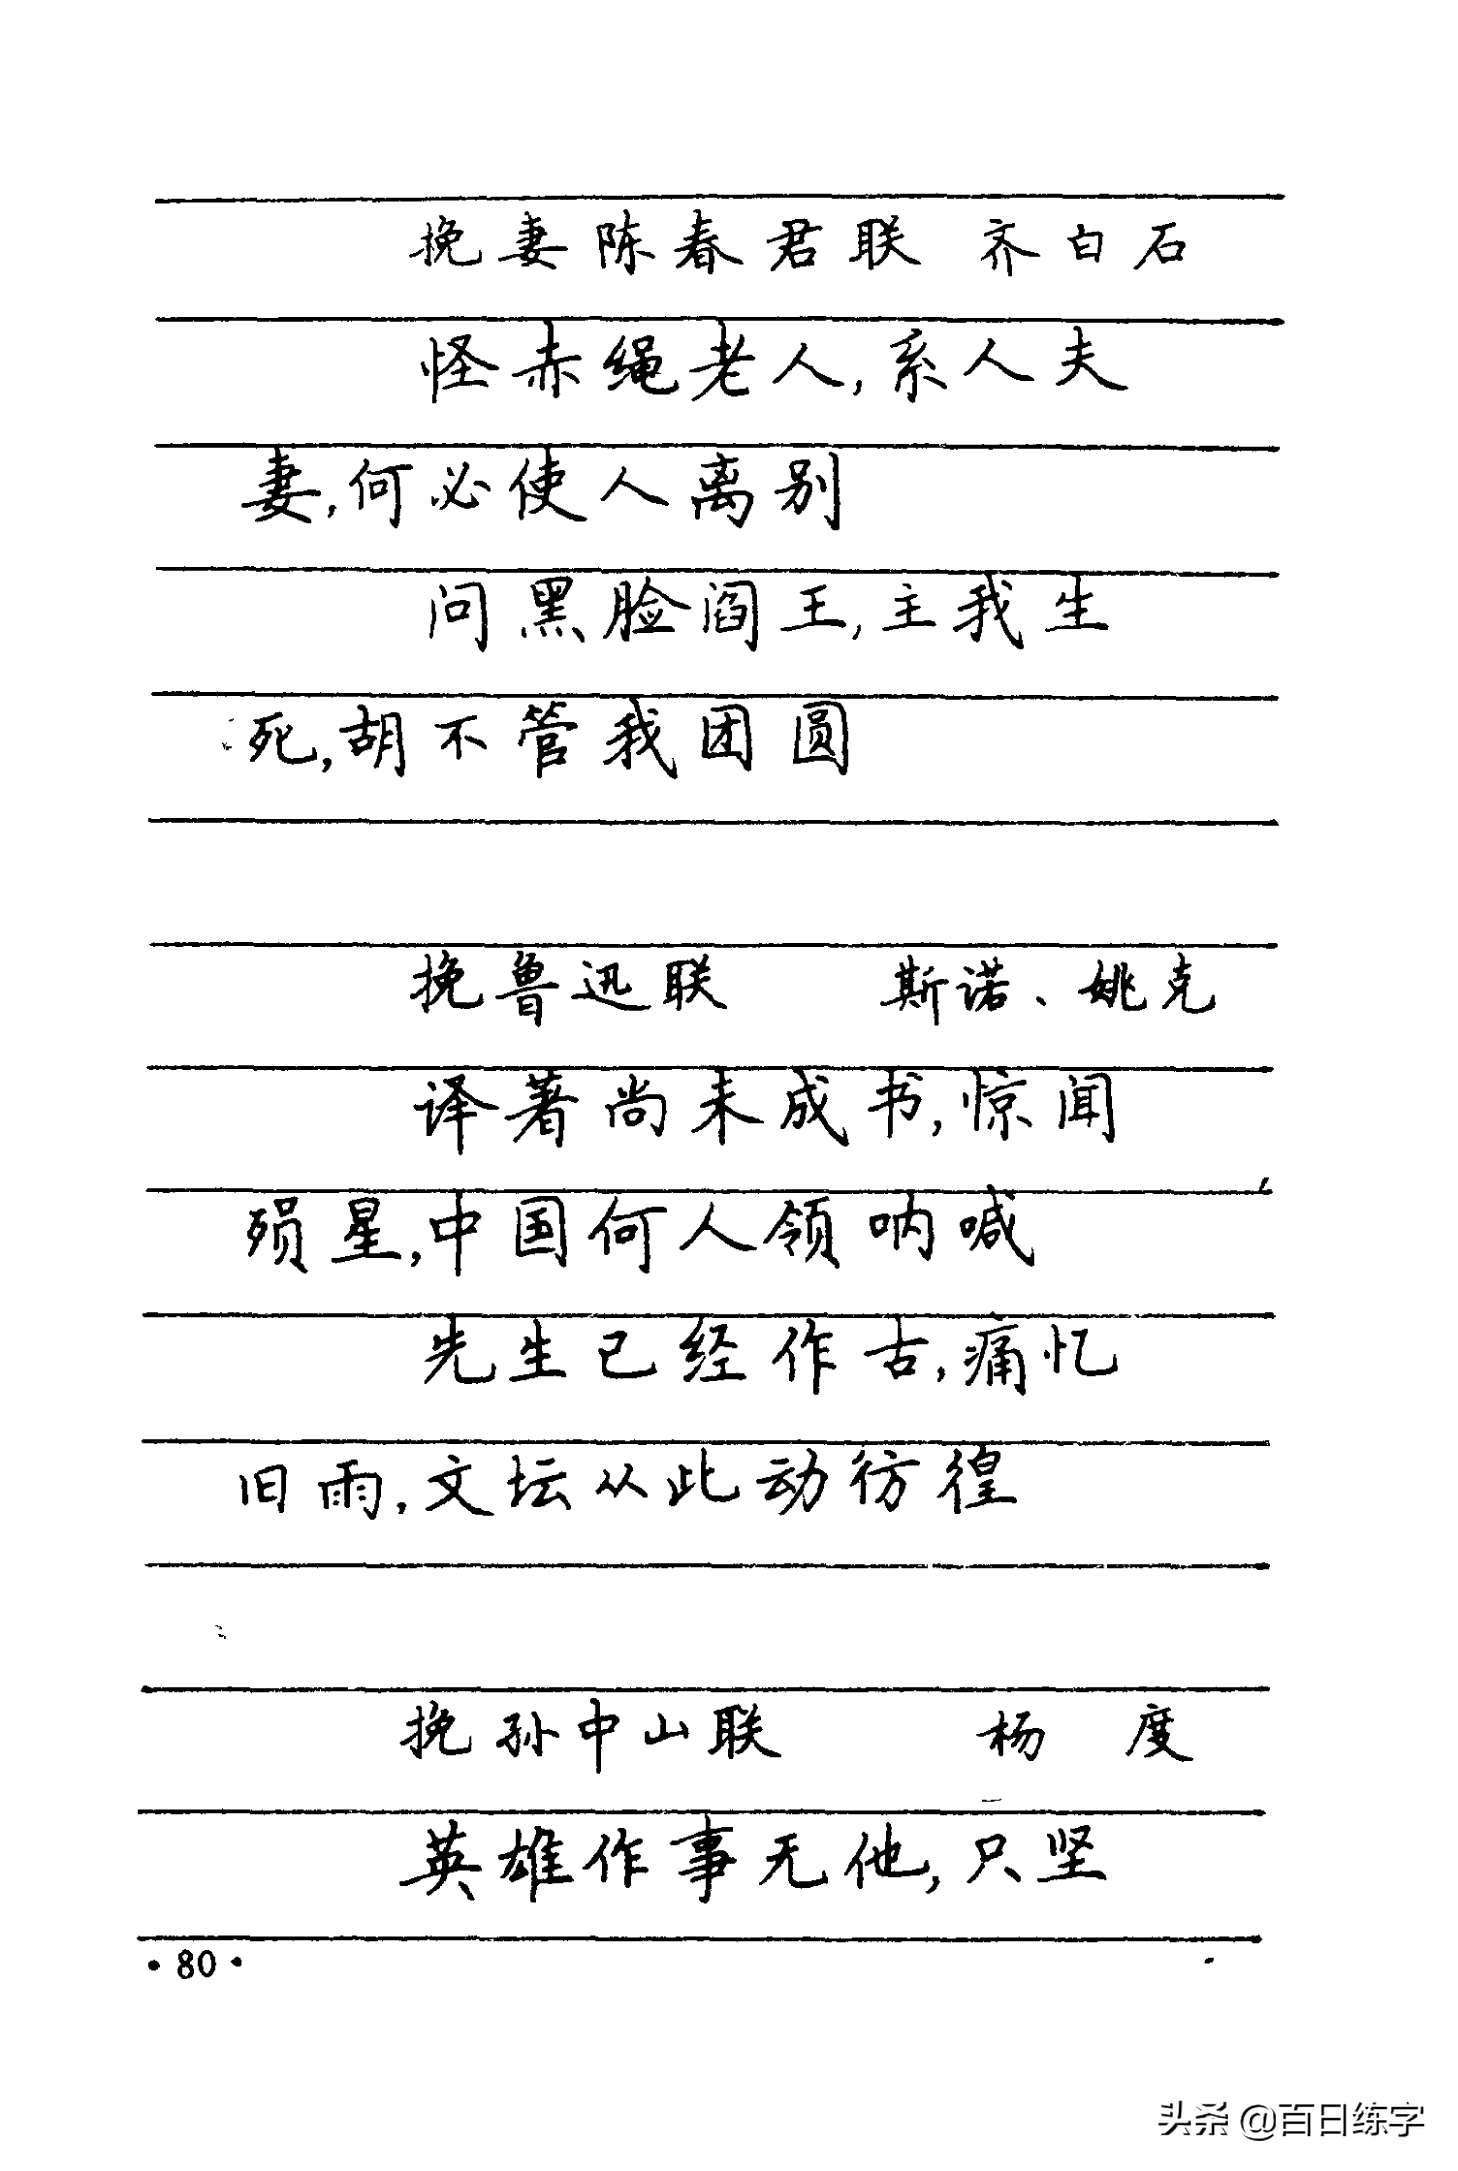 挽妻陈春君联 齐白石
怪赤绳老人,系人夫
妻,何必使人离别
问黑脸阎王,主我生
死,胡不管我团圆
挽鲁迅联 斯诺、姚克
译著尚未成书,惊闻
殒星,中国何人领呐喊
先生已经作古,痛忆
旧雨,文坛从此动彷徨
挽孙中山联 杨 度
英雄作事无他,只坚
·80·
头条 @百日练字